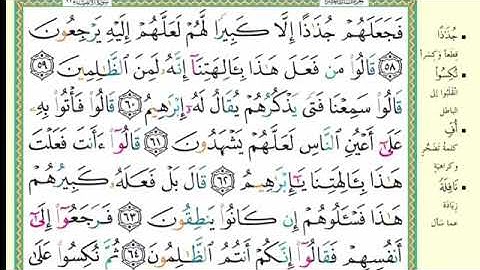 فَجَعَلَهُمْ جُذَاذًا إِلَّا كَبِيرًا لَّهُمْ لَعَلَّهُمْ إِلَيْهِ يَرْجِعُونَ
٥٨ قَالُوا۟ مَن فَعَلَ هَٰذَا بِـَٔالِهَتِنَآ إِنَّهُۥ لَمِنَ ٱلظَّٰلِمِينَ ٥٩
قَالُوا۟ سَمِعْنَا فَتًى يَذْكُرُهُمْ يُقَالُ لَهُۥٓ إِبْرَٰهِيمُ ٦٠ قَالُوا۟ فَأْتُوا۟ بِهِۦ
عَلَىٰٓ أَعْيُنِ ٱلنَّاسِ لَعَلَّهُمْ يَشْهَدُونَ ٦١ قَالُوٓا۟ ءَأَنتَ فَعَلْتَ
هَٰذَا بِـَٔالِهَتِنَا يَٰٓإِبْرَٰهِيمُ ٦٢ قَالَ بَلْ فَعَلَهُۥ كَبِيرُهُمْ
هَٰذَا فَسْـَٔلُوهُمْ إِن كَانُوا۟ يَنطِقُونَ ٦٣ فَرَجَعُوٓا۟ إِلَىٰٓ
أَنفُسِهِمْ فَقَالُوٓا۟ إِنَّكُمْ أَنتُمُ ٱلظَّٰلِمُونَ ٦٤ ثُمَّ نُكِسُوا۟ عَلَىٰ
جُذَاذًا
قِطَعاً وَكِسَراً
نُكِسُوا
انْقَلَبُوا إلى
الباطل
أُفٍّ
كلمة تَضَجُّرٍ
وكراهية
نَافِلَةً
زيادة
عما سأل